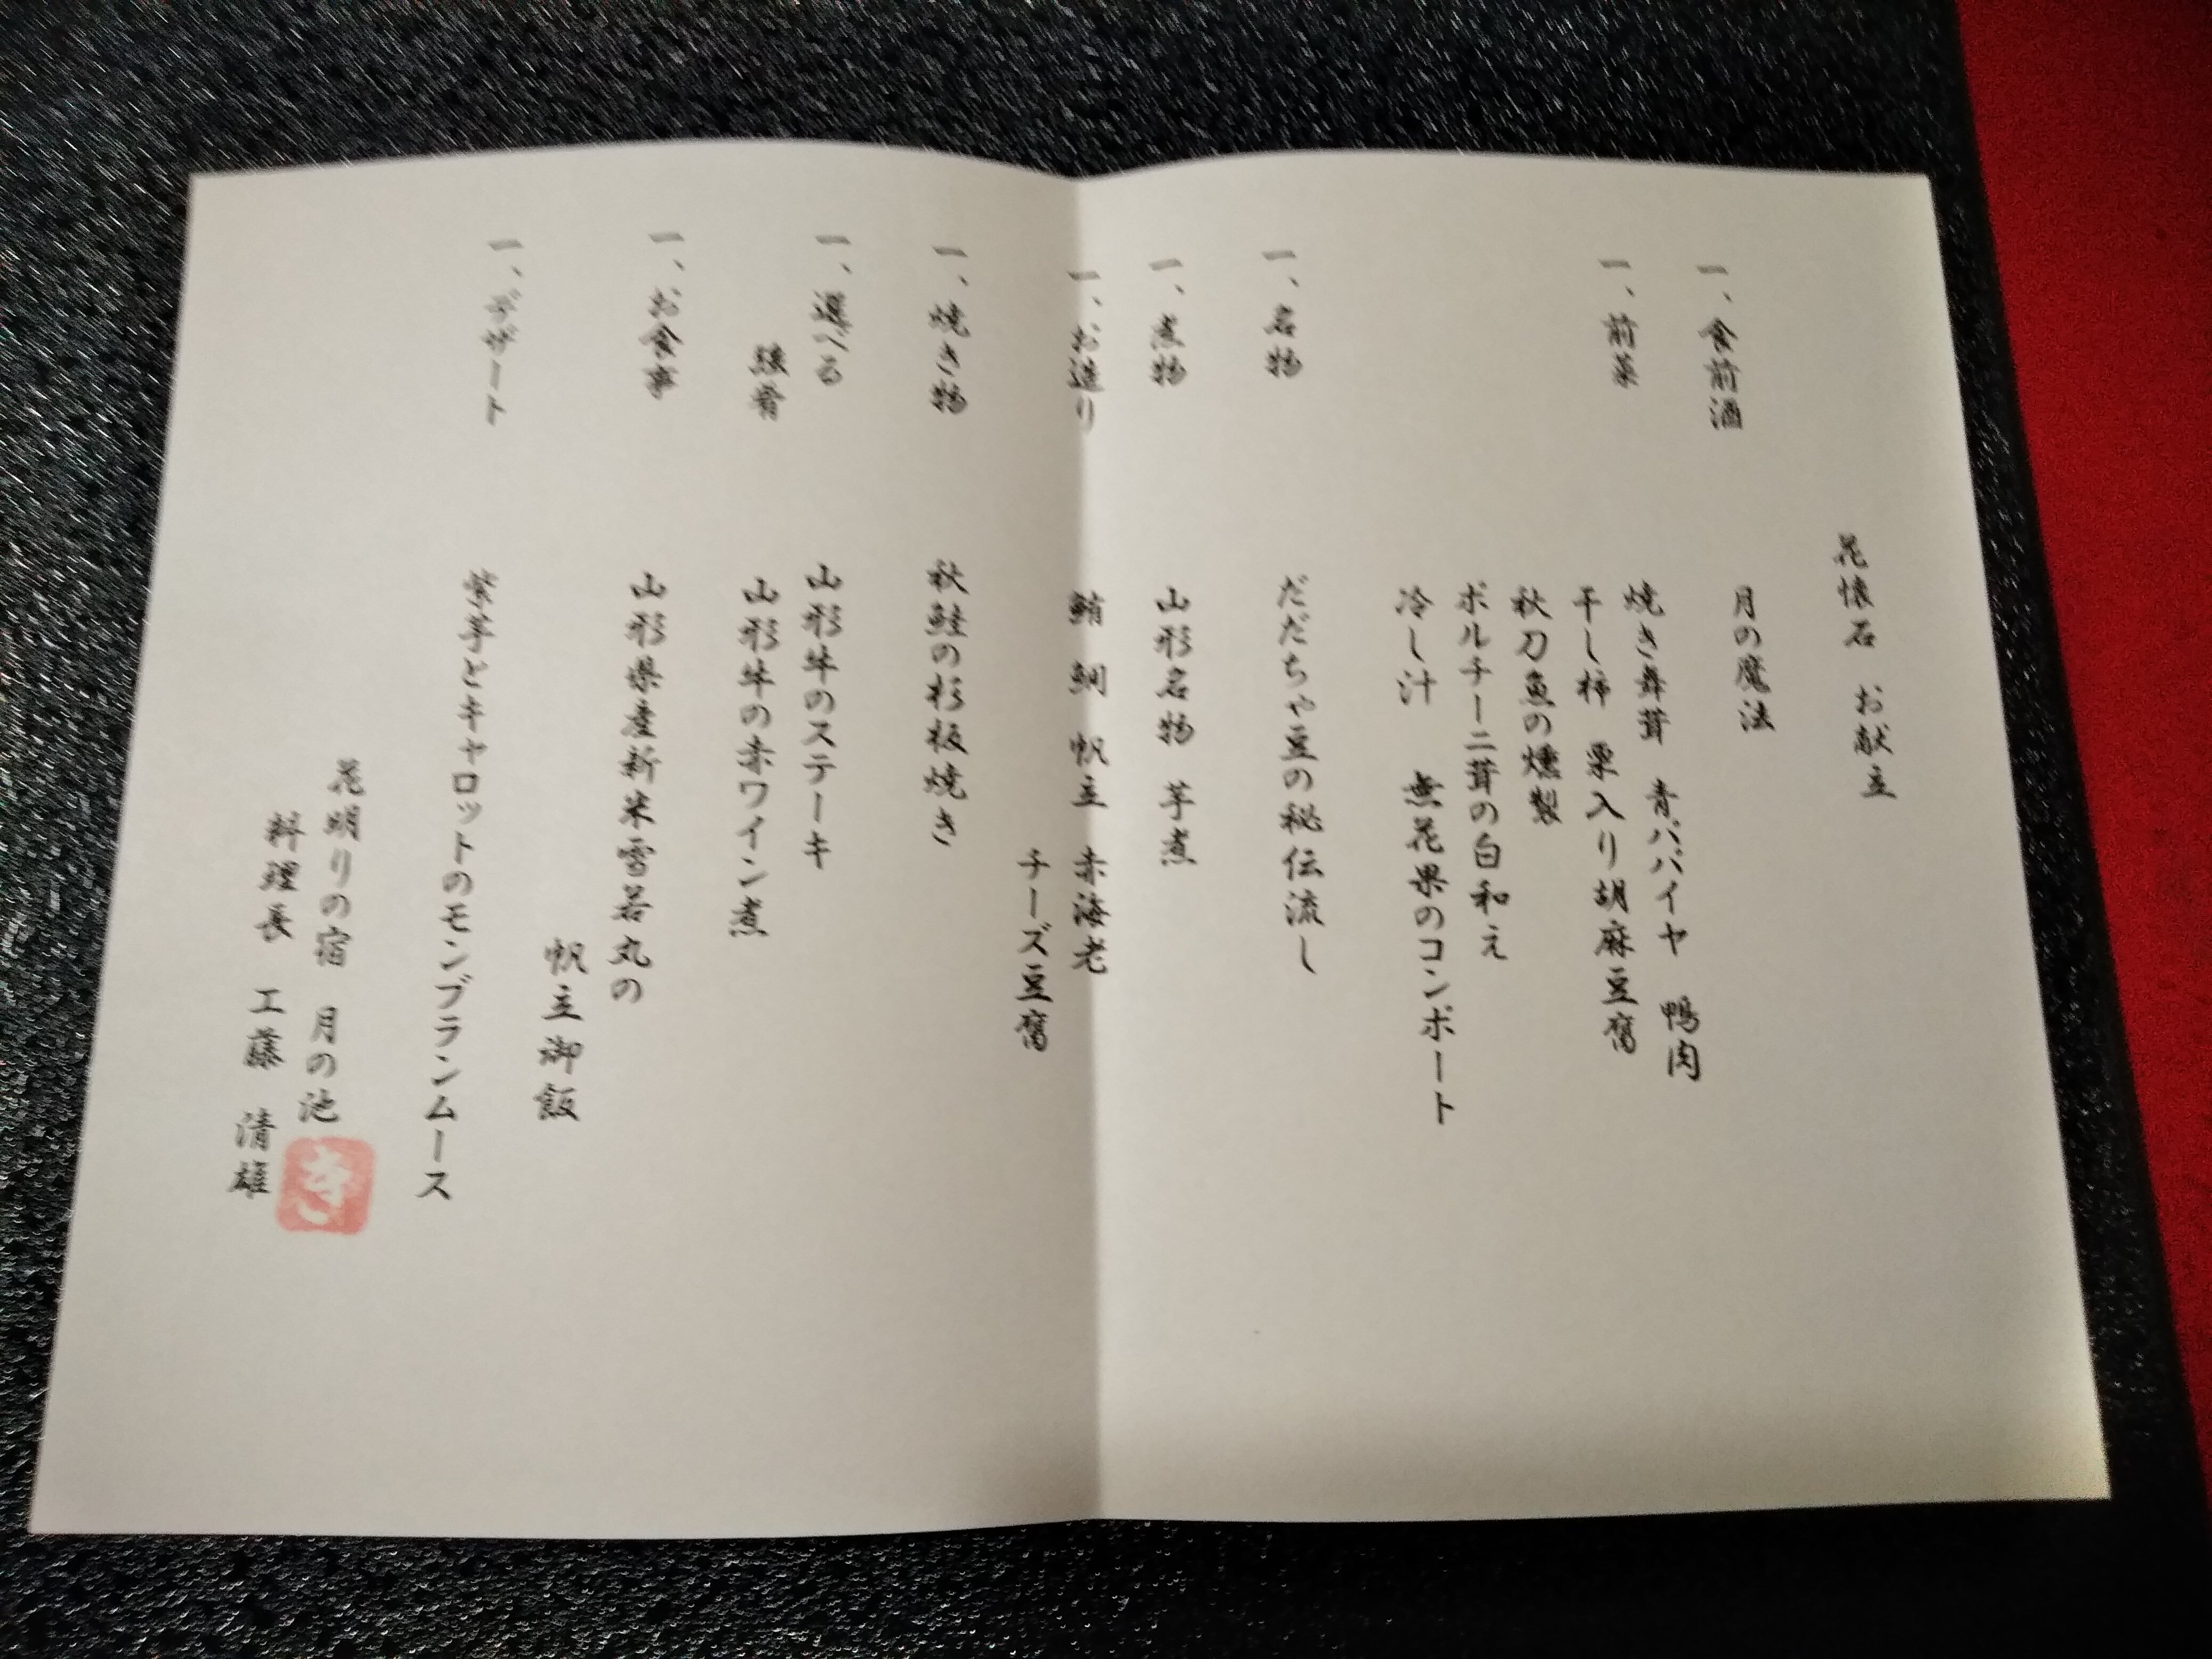 花懐石 お献立
一、食前酒 月の魔法
一、前菜 焼き舞茸 青パパイヤ 鴨肉
干し柿 栗入り胡麻豆腐
秋刀魚の燻製
ポルチーニ茸の白和え
冷し汁 無花果のコンポート
一、名物 だだちゃ豆の秘伝流し
一、煮物 山形名物 芋煮
一、お造り 鮪 鯛 帆立 赤海老
チーズ豆腐
一、焼き物 秋鮭の杉板焼き
一、選べる 山形牛のステーキ
強肴 山形牛の赤ワイン煮
一、お食事 山形県産新米雪若丸の
帆立御飯
一、デザート 紫芋とキャロットのモンブランムース
花明りの宿 月の池
料理長 工藤 清雄